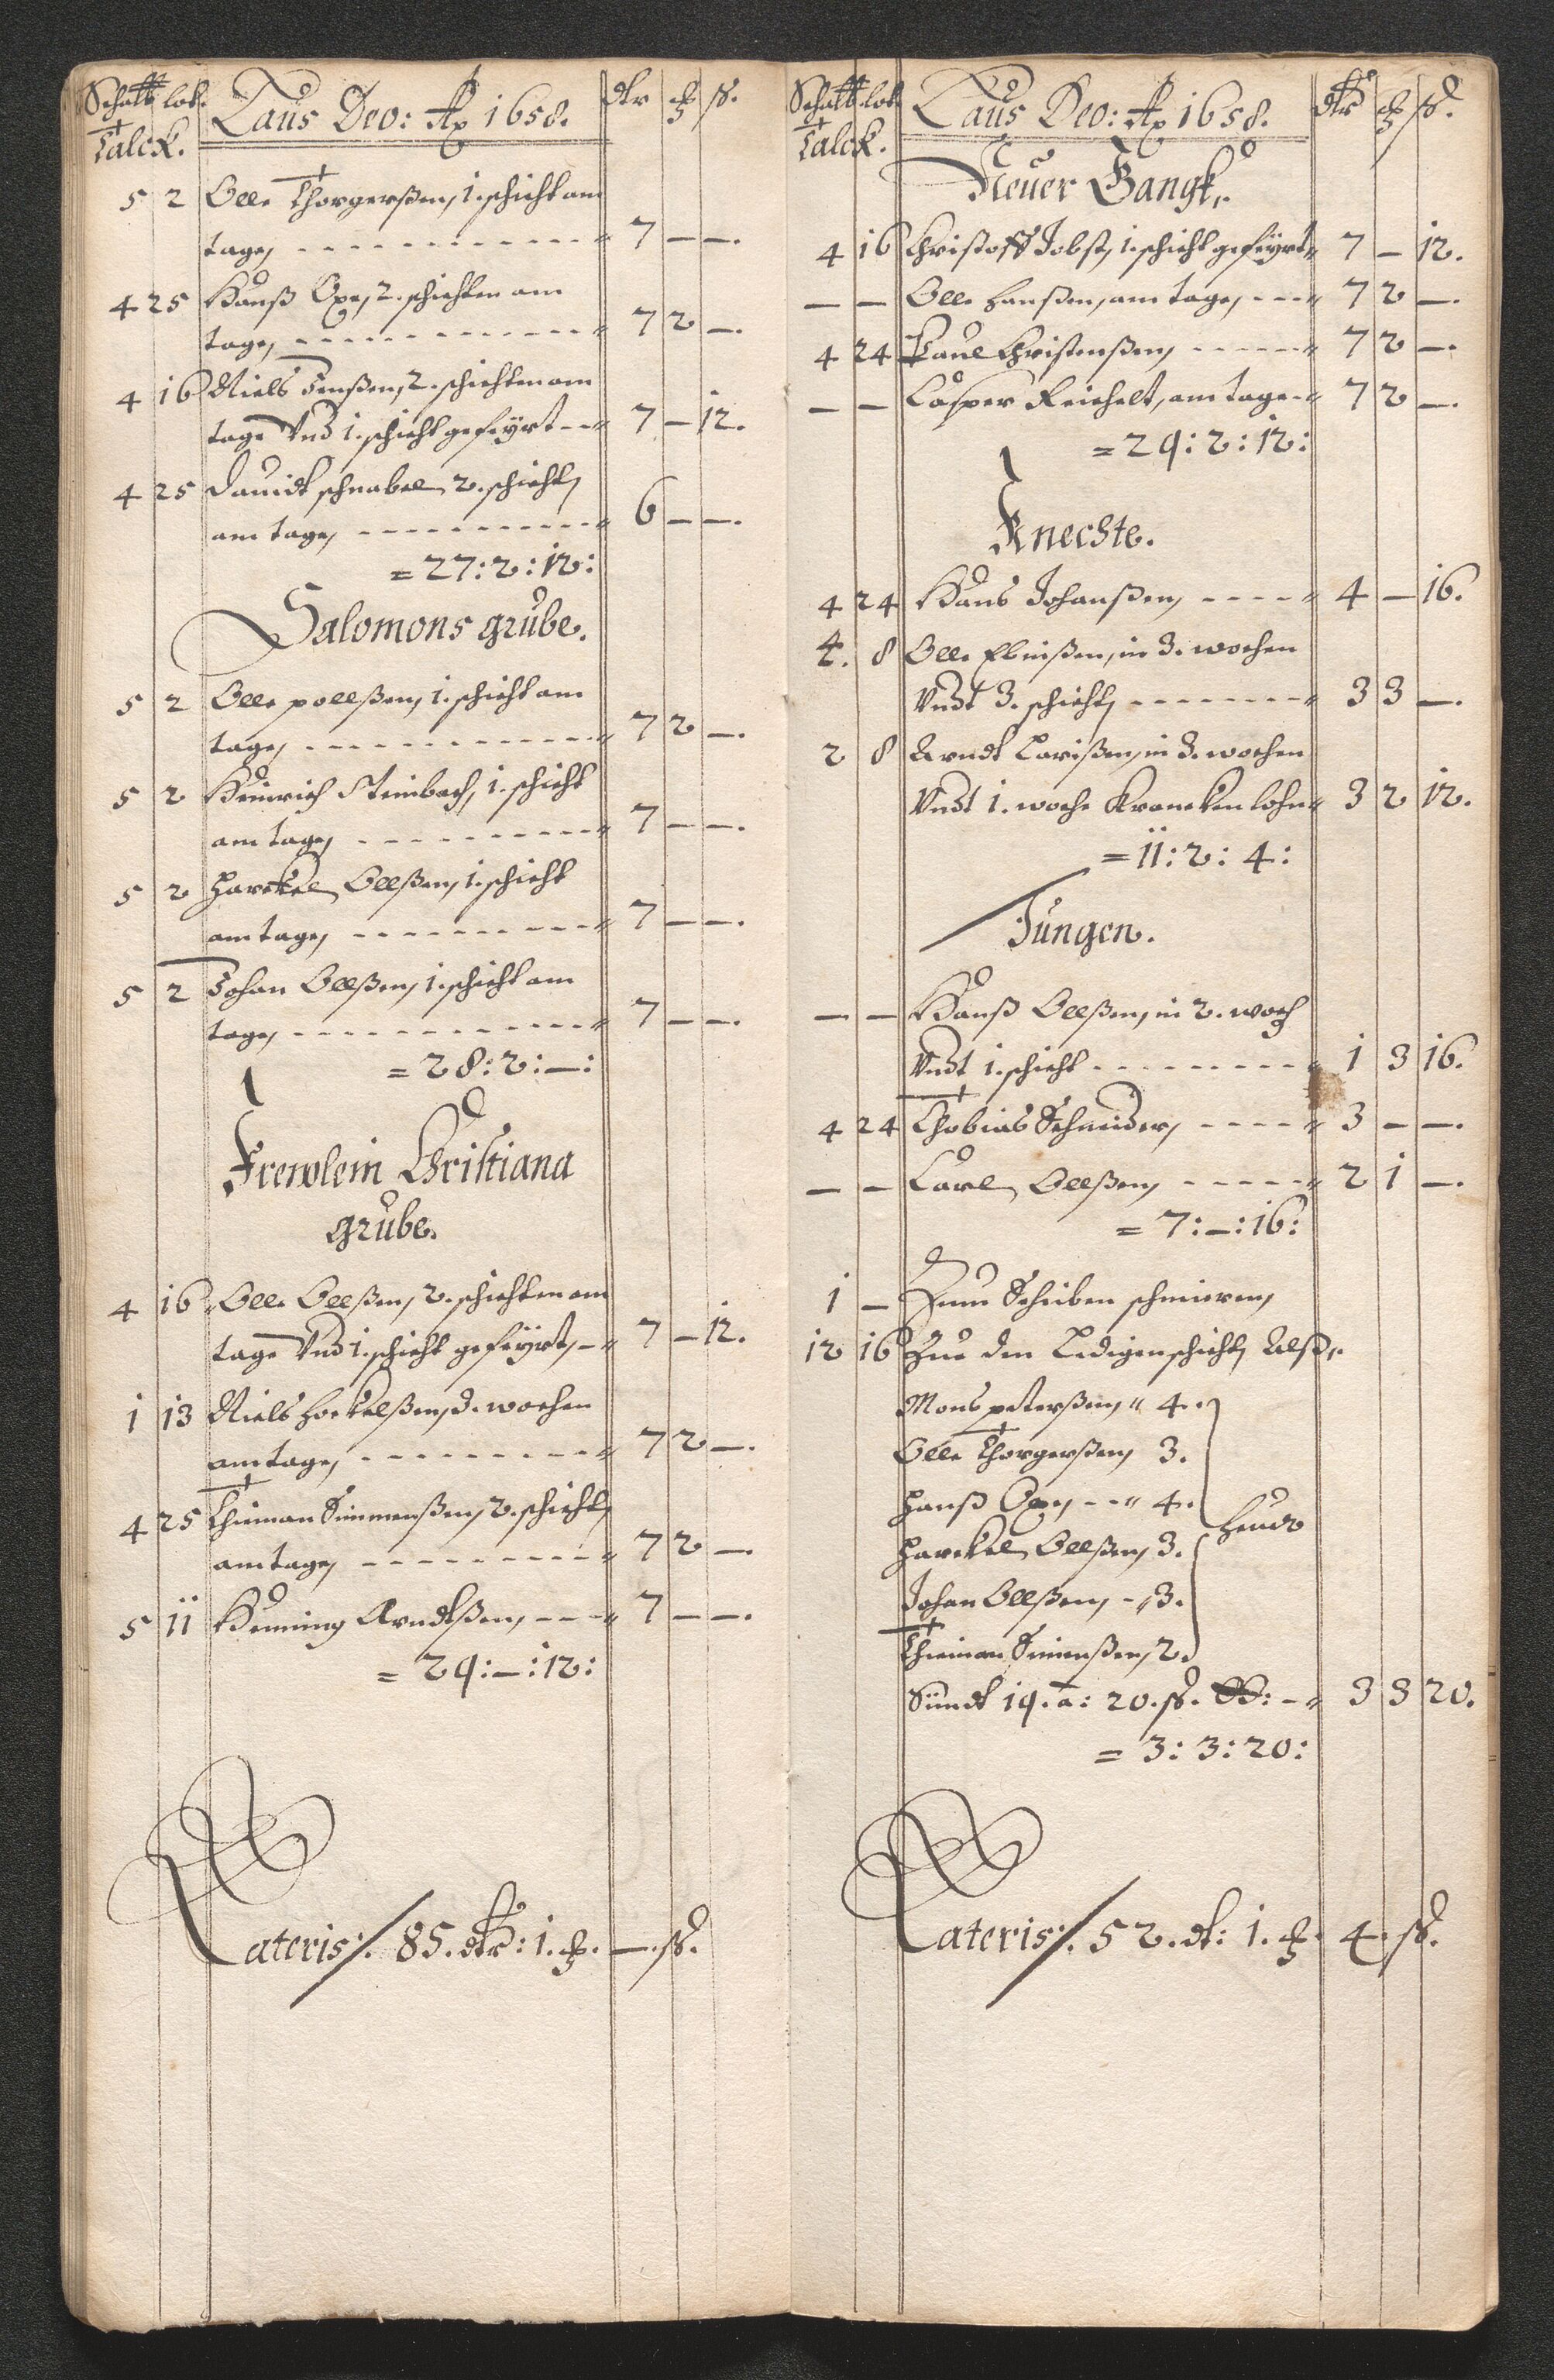 Schatt lot. Laus Deo: Ao 1658. dlr ß.
Talck.
5 2 Olle Thorgerßen, 1. schicht am
tage, - - - 7 — —.
4 25 Hanß Oxe, 2. schichten am
tage, - - - 7 2 —.
4 16 Niels Jenßen, 2. schichten am
tage Vnd 1. schicht gefeÿrt - - 7 — 12.
4 25 Dauidt schnabel, 2. schicht,
am tage, - - - 6 — —.
= 27: 2: 12:
Salomons grube.
5 2 Olle pollßen, 1. schicht am
tage, - - - 7 2 —.
5 2 Heinrich Steinbach, 1. schicht
am tage, - - - 7 — —.
5 2 Harckel Ollßen, 1. schicht
am tage, - - - 7 — —.
5 2 Johan Ollßen, 1. schicht am
tage, - - - 7 — —.
= 28: 2: —:
Frewlein Christiana
grube.
4 16 Olle Ollßen, 2. schichten am
tage Vnd 1. schicht gefeÿrt, - 7 — 12.
1 13 Niels 3. wochen
am tage, - - - 7 2 —.
4 25 Thieman Simmenßen, 2. schicht,
am tage, - - - 7 2 —.
5 11 Henning Arndtßen, - - - 7 — —.
= 29: —: 12:
Lateris /. 85. dlr: 1. — ß.
Schatt lot Laus Deo: Ao 1658. dlr ß.
Talck.
Neuer Gangk.
4 16 Christoff Jobst, 1. schicht gefeÿrt 7 — 12.
— — Olle Hanßen, am tage, - - - 7 2 —.
4 24 Paul Christenßen, - - - 7 2 —.
— — Casper Reichelt, am tage - 7 2 —.
= 29: 2: 12:
Knechte.
4 24 Hans Johanßen, - - - 4 — 16.
4. 8 Olle in 3. wochen
Vndt 3. schicht, - - - 3 3 —.
2 8 Arndt Larißen, in 3. wochen
Vndt 1. woche Krancken lohn 3 2 12.
= 11: 2: 4:
Jungen.
— — Hanß Ollßen, in 2. woch
Vndt 1. schicht - - - 1 3 16.
4 24 Thobias Schneider, - - - 3 — —.
— — Carl Ollßen, - - - 2 1 —.
= 7: —: 16:
1 — Zum Scheiben schmieren,
12 16 Zue den Ledigenschicht, Alß,
Mons peterßen, 4.
Olle Thorgerßen, 3.
Hanß Oxe, - - 4.
Harckel Ollßen, 3.
Johan Ollßen, - 3.
Thieman Simenßen, 2.
Sündt 19. a: 20. ß. - 3 3 20.
= 3: 3: 20:
Lateris /. 52. dl: 1. 4. ß.